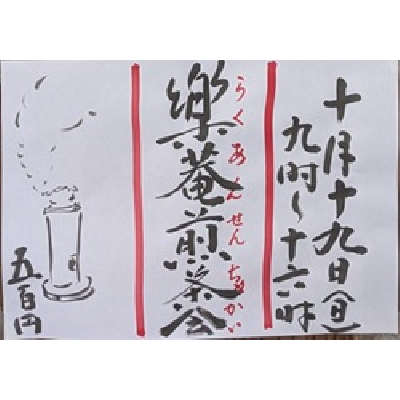 十月十九日(日)
九時〜十六時
樂菴煎茶会
らくあんせんちゃかい
五百円